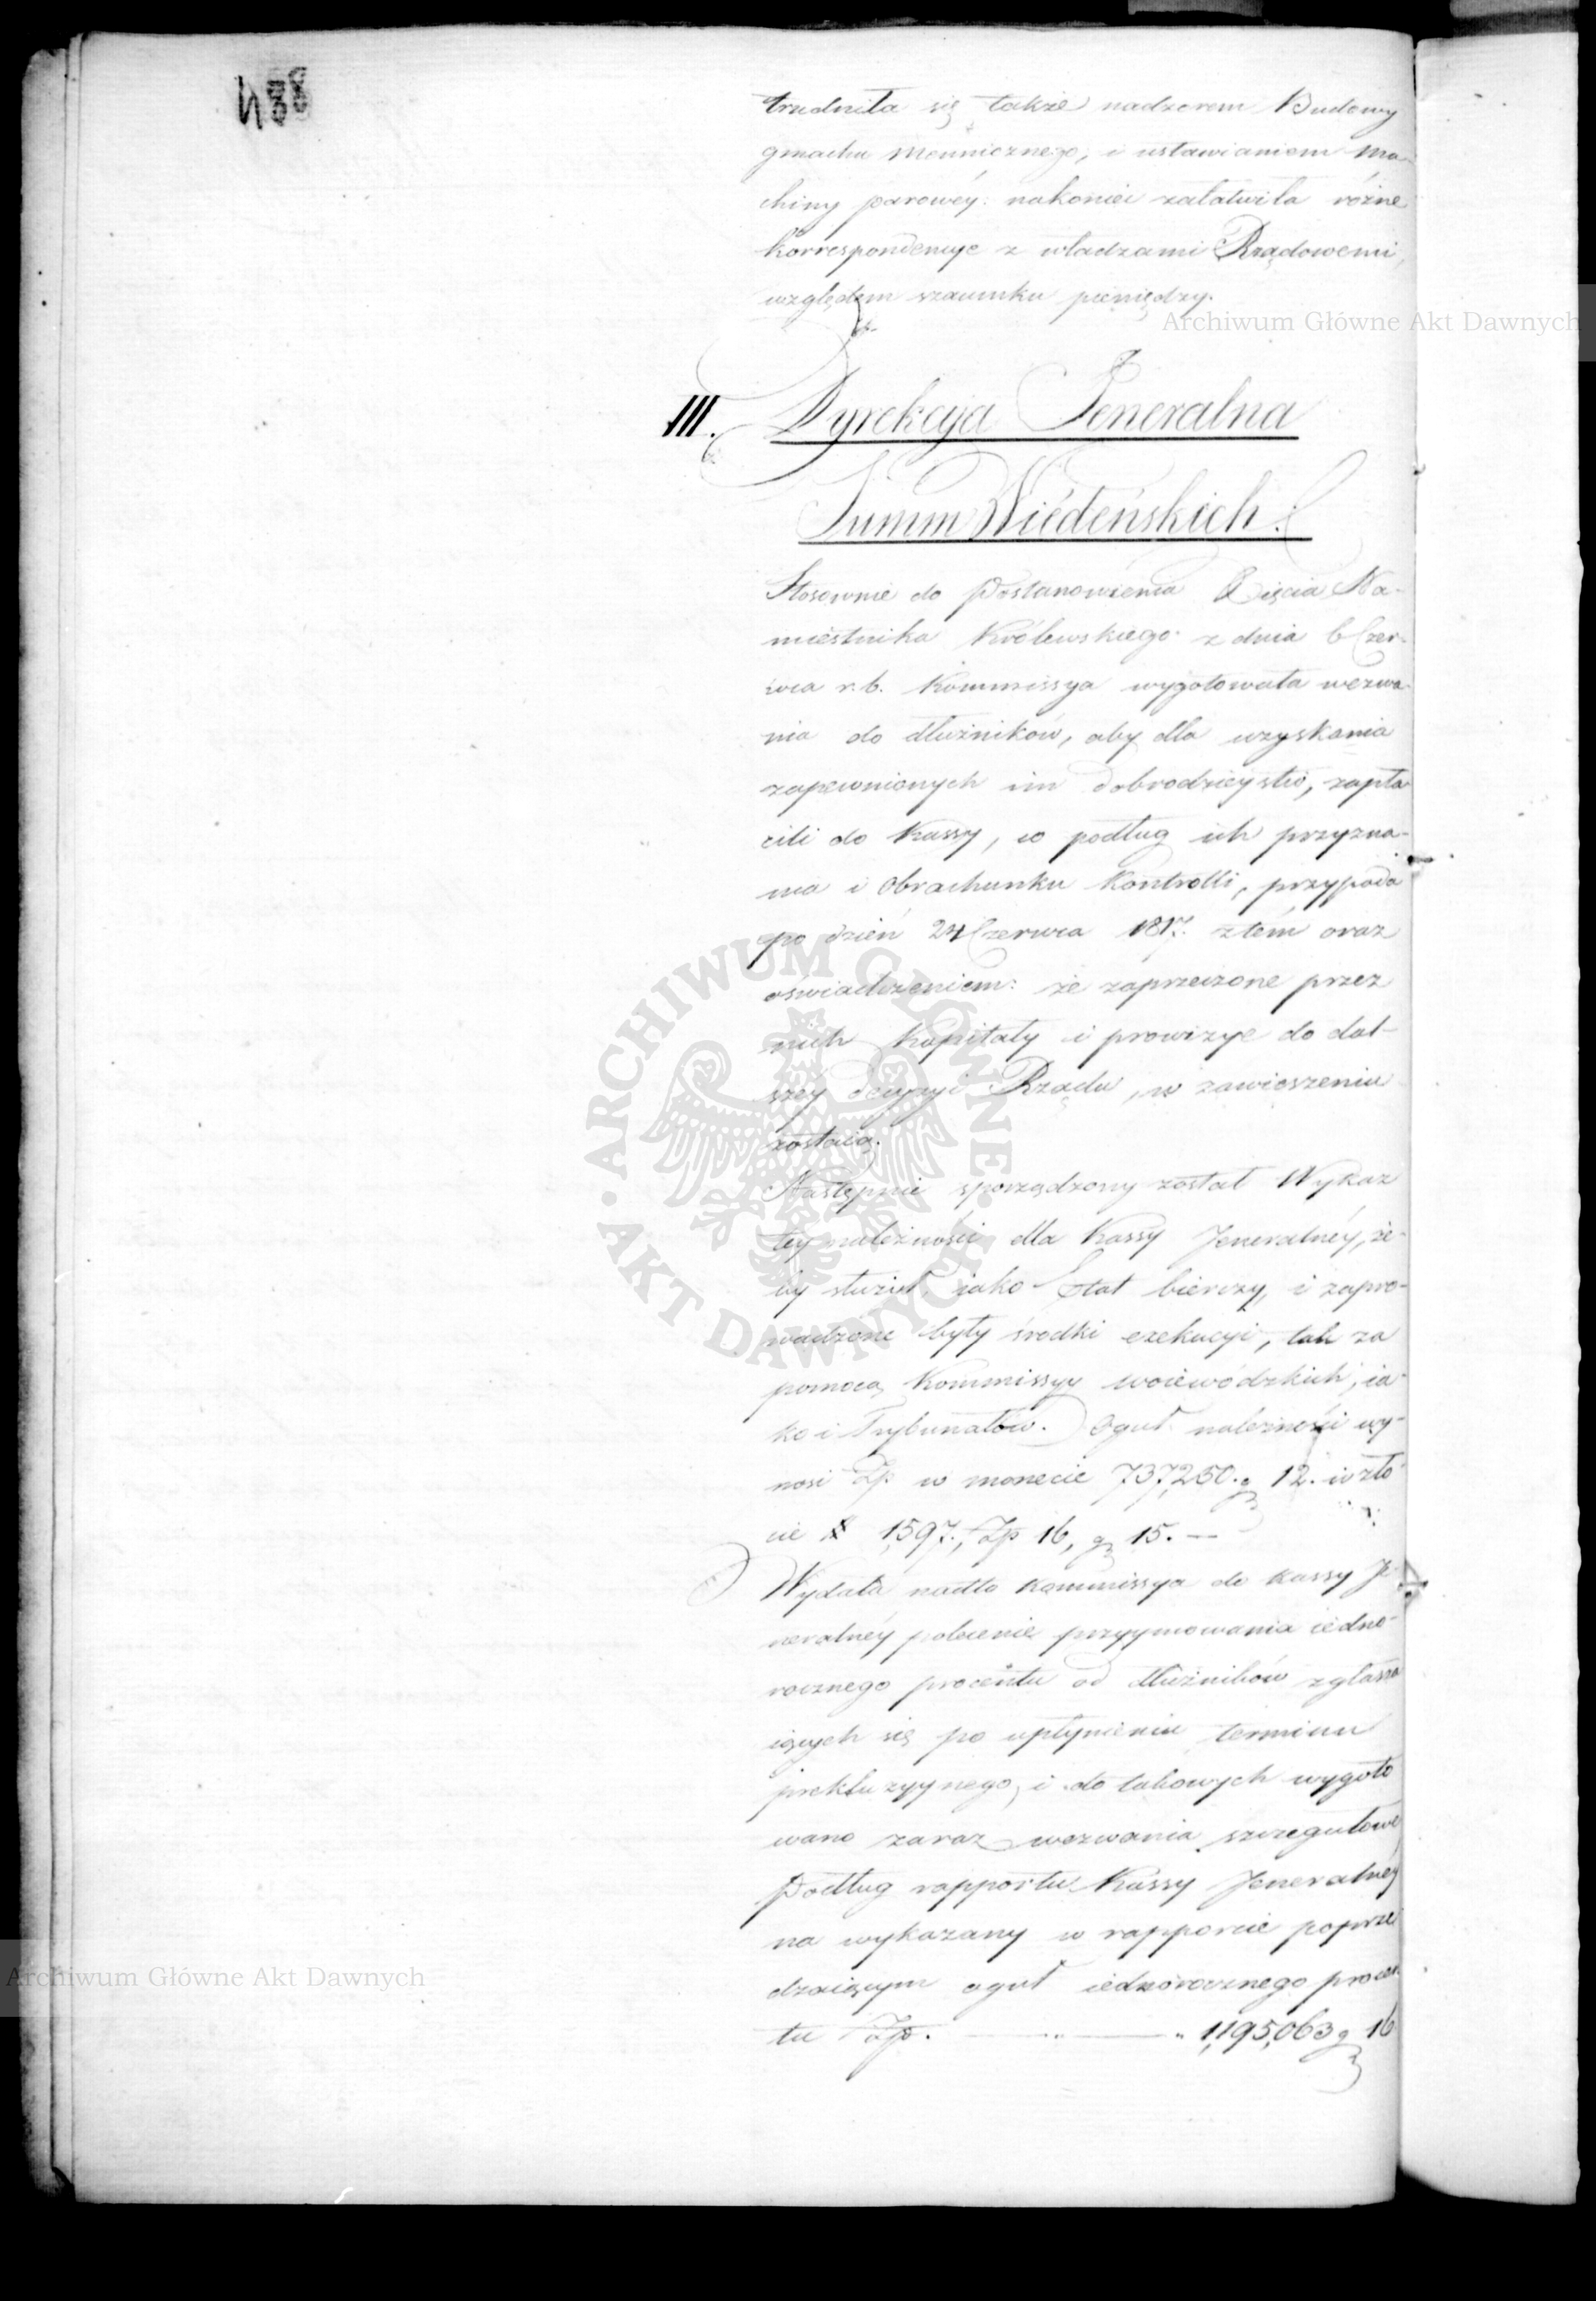 488
trudniła się także nadzorem Budowy
gmachu Mennicznego, i ustawianiem Ma-
chiny parowéy: nakoniec załatwiła różne
korrespondencye z władzami Rządowemi,
względem szacunku pieniędzy.
Archiwum Główne Akt Dawnych
III. Dyrekcja Jeneralna
Summ Wiédeńskich.
Stosownie do Postanowienia Xięcia Na-
miestnika Królewskiego z dnia 6 Czer-
wca r. b. Kommissya wygotowała wezwa-
nia do dłużników, aby dla uzyskania
zapewnionych im dobrodzieystw, zapła-
cili do Kassy, co podług ich przyzna-
nia i Obrachunku Kontrolli, przypada
po dzień 24 Czerwca 1817. z tém oraz
oświadczeniem: że zaprzeczone przez
nich Kapitały i prowizye do dal-
szey decyzyi Rządu, w zawieszeniu
zostaią.
Następnie sporządzony został Wykaz
tey należności dla Kassy Jeneralnéy, że-
by służył iako Etat bierczy, i zapro-
wadzone były środki exekucyi, tak za
pomocą Kommissyy woiewódzkich, ia-
ko i Trybunałów. Oguł należności wy-
nosi Zp. w monecie 737,250. g 12. w zło-
cie # 1,597., Zp 16, g 15. —
Wydała nadto Kommissya do kassy Je-
neralnéy polecenie przyymowania iedno-
rocznego procentu od dłużników zgłasza
iących się po upłynieniu terminu
prekluzyynego, i do takowych wygoto
wano zaraz wezwania szczegułowe
Podług rapportu Kassy Jeneralnéy
na wykazany w rapporcie poprze
dzaiącym oguł iednorocznego procen
tu Zp. — „ — „ 1,195,063 g 16
ARCHIWUM GŁÓWNE AKT DAWNYCH
Archiwum Główne Akt Dawnych